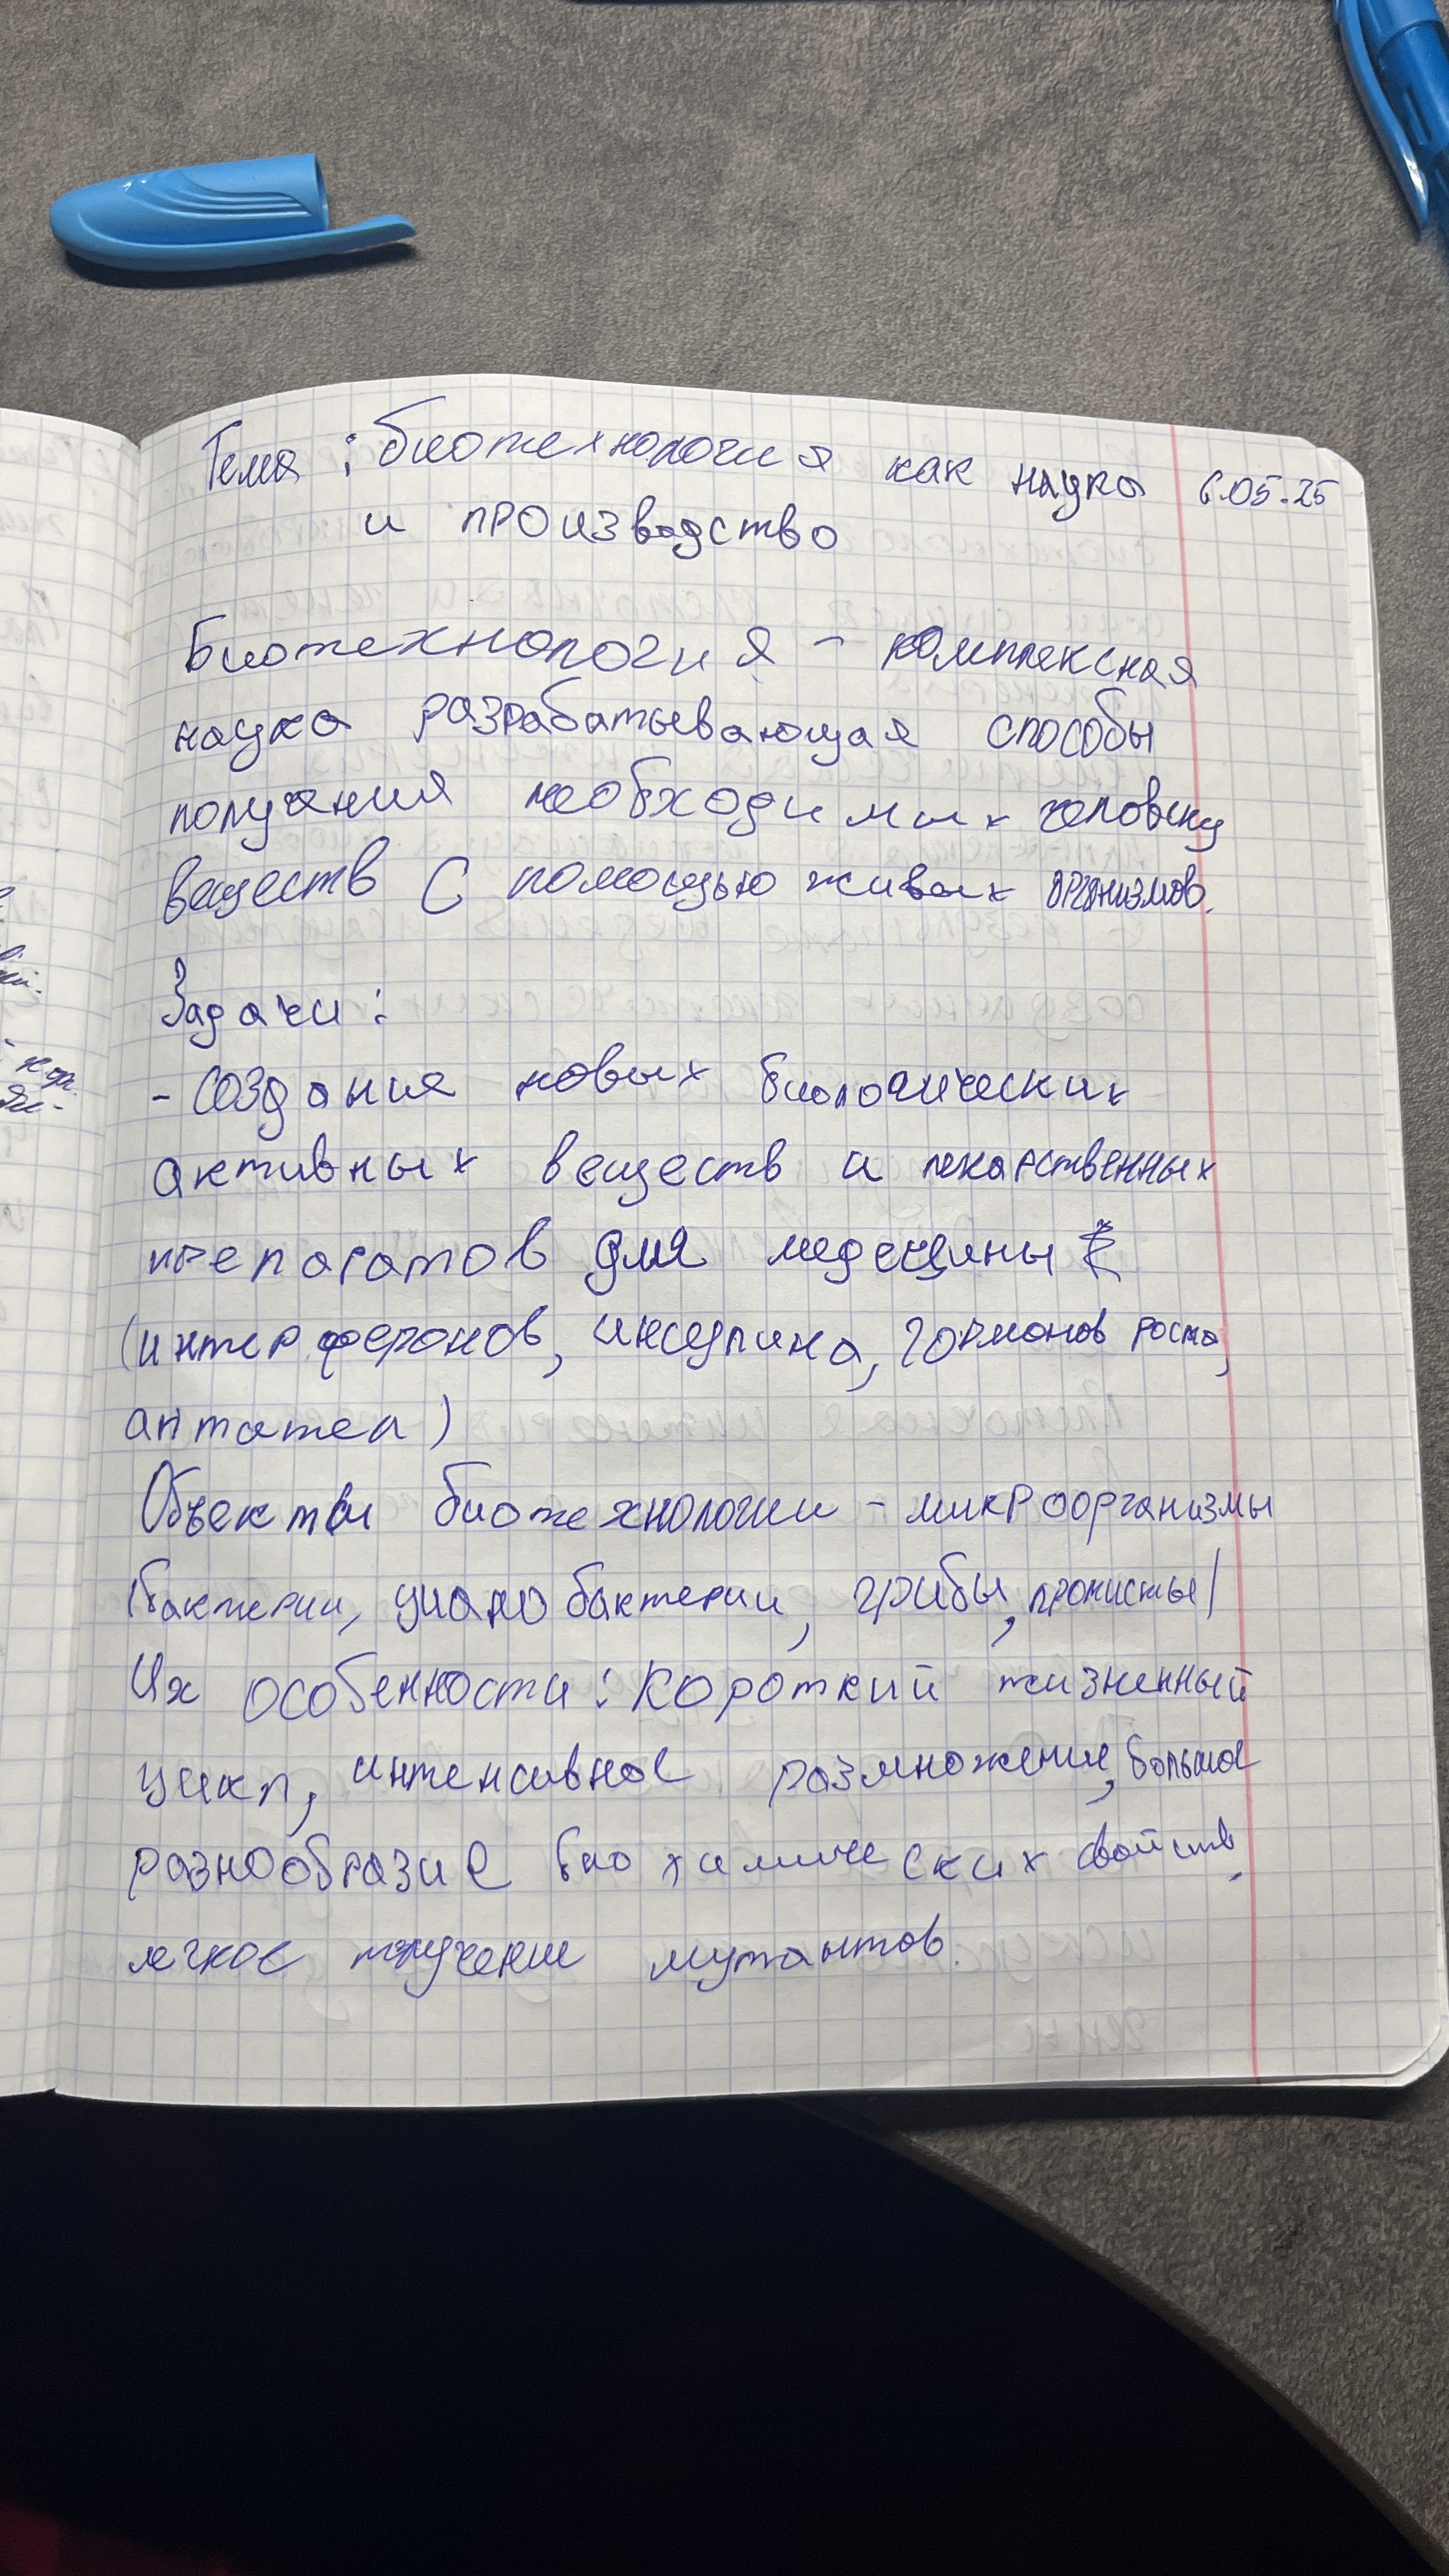 Тема: биотехнология как наука 6.05.25
и производство
Биотехнология - комплексная
наука разрабатывающая способы
получения необходимых человеку
веществ с помощью живых организмов.
Задачи:
- создания новых биологических
активных веществ и лекарственных
препаратов для медецины
(интерферонов, инсулина, гормонов роста,
антител)
Объекты биотехнологии - микроорганизмы
(бактерии, цианобактерии, грибы, протисты)
Их особенности: Короткий жизненный
цикл, интенсивное размножение, большое
разнообразие биохимических свойств,
легкое получение мутантов.